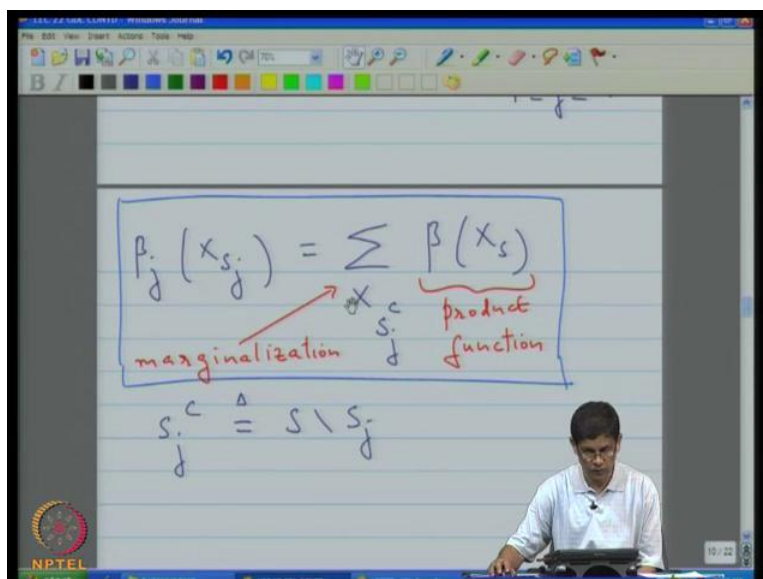 LEC 22 GDL CONTD - Windows Journal
File Edit View Insert Actions Tools Help
70%
B I
β_j (x_{s_j}) = Σ_{x_{s_j^c}} β (x_s)
marginalization
product
function
s_j^c ≜ S \ s_j
10 / 22
NPTEL